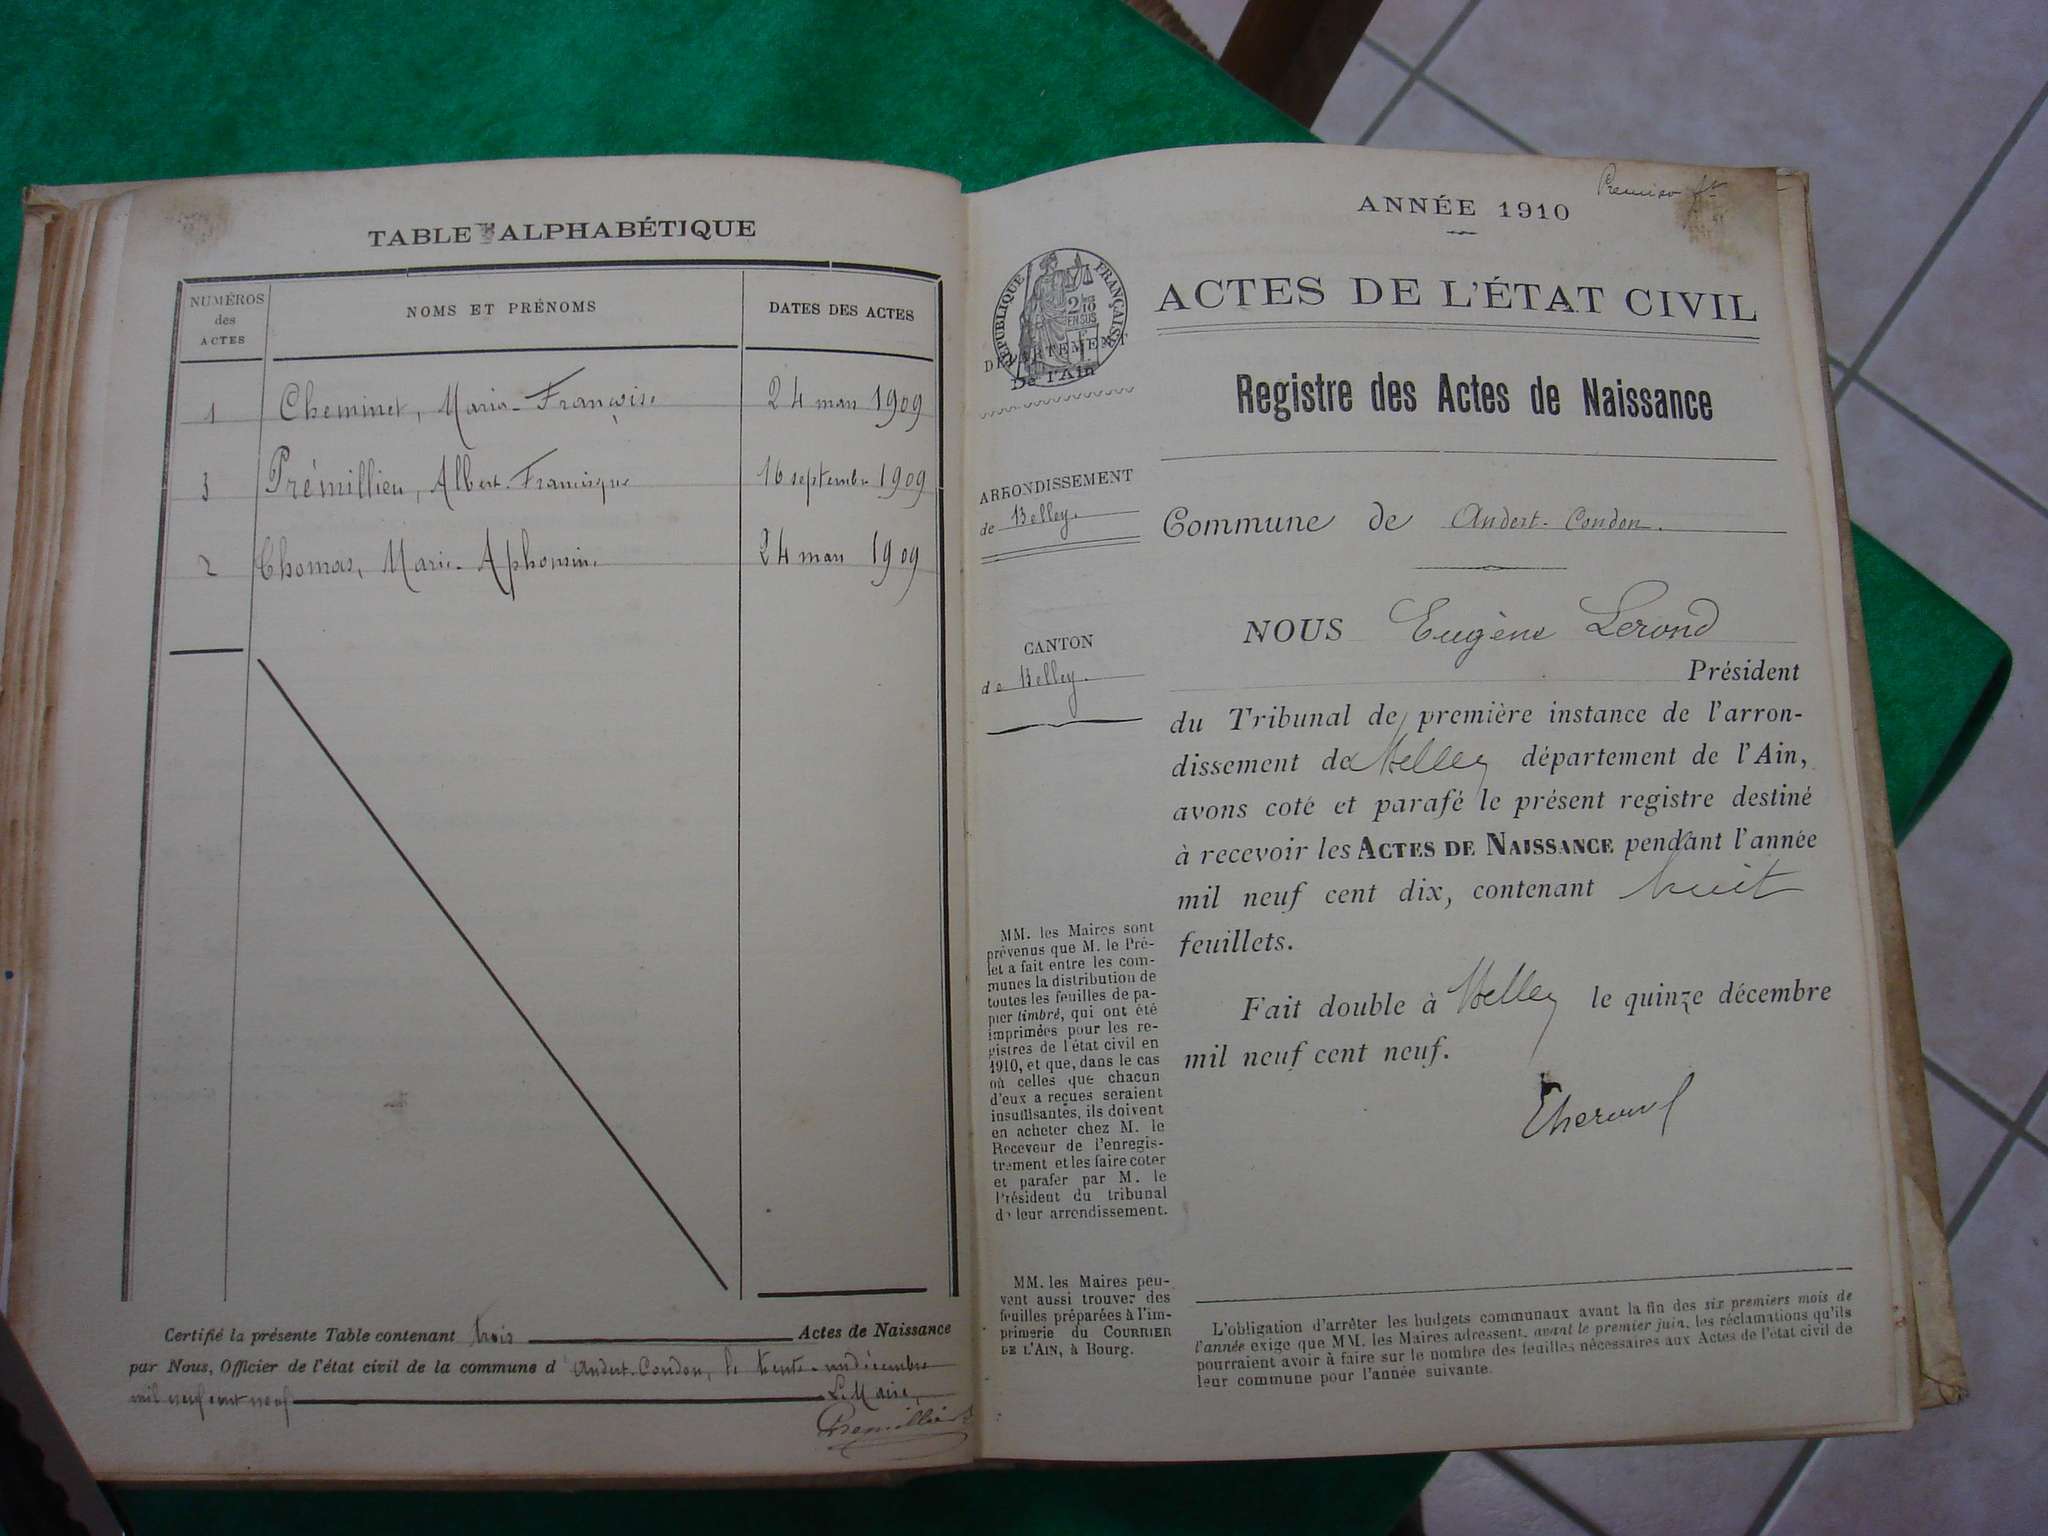 TABLE ALPHABÉTIQUE
NUMÉROS des ACTES
NOMS ET PRÉNOMS
DATES DES ACTES
1 Cheminet, Maria-Françoise 24 mars 1909
3 Prémillieu, Albert-Francisque 16 septembre 1909
2 Thomas, Marie-Alphonsine 24 mars 1909
Certifié la présente Table contenant trois Actes de Naissance
par Nous, Officier de l'état civil de la commune d'Andert-Condon, le trente-un décembre
mil neuf cent neuf Le Maire,
Premillieu
Premier
ANNÉE 1910
RÉPUBLIQUE FRANÇAISE
2/10
EN SUS
DÉPARTEMENT
De l'Ain
ACTES DE L'ÉTAT CIVIL
Registre des Actes de Naissance
ARRONDISSEMENT
de Belley.
Commune de Andert-Condon.
CANTON
de Belley.
NOUS Eugène Lerond
Président
du Tribunal de première instance de l'arron-
dissement de Belley département de l'Ain,
avons coté et parafé le présent registre destiné
à recevoir les ACTES DE NAISSANCE pendant l'année
mil neuf cent dix, contenant huit
feuillets.
Fait double à Belley le quinze décembre
mil neuf cent neuf.
MM. les Maires sont
prévenus que M. le Pré-
fet a fait entre les com-
munes la distribution de
toutes les feuilles de pa-
pier timbré, qui ont été
imprimées pour les re-
gistres de l'état civil en
1910, et que, dans le cas
où celles que chacun
d'eux a reçues seraient
insuffisantes, ils doivent
en acheter chez M. le
Receveur de l'enregis-
trement et les faire coter
et parafer par M. le
Président du tribunal
de leur arrondissement.
MM. les Maires peu-
vent aussi trouver des
feuilles préparées à l'im-
primerie du COURRIER
DE L'AIN, à Bourg.
L'obligation d'arrêter les budgets communaux avant la fin des six premiers mois de
l'année exige que MM. les Maires adressent, avant le premier juin, les réclamations qu'ils
pourraient avoir à faire sur le nombre des feuilles nécessaires aux Actes de l'état civil de
leur commune pour l'année suivante.